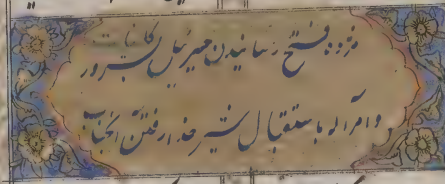 مژده فتح رسانیدن جبرئیل بسرور کاینات
و امر او باستقبال شیر خدا رفتن آنجناب